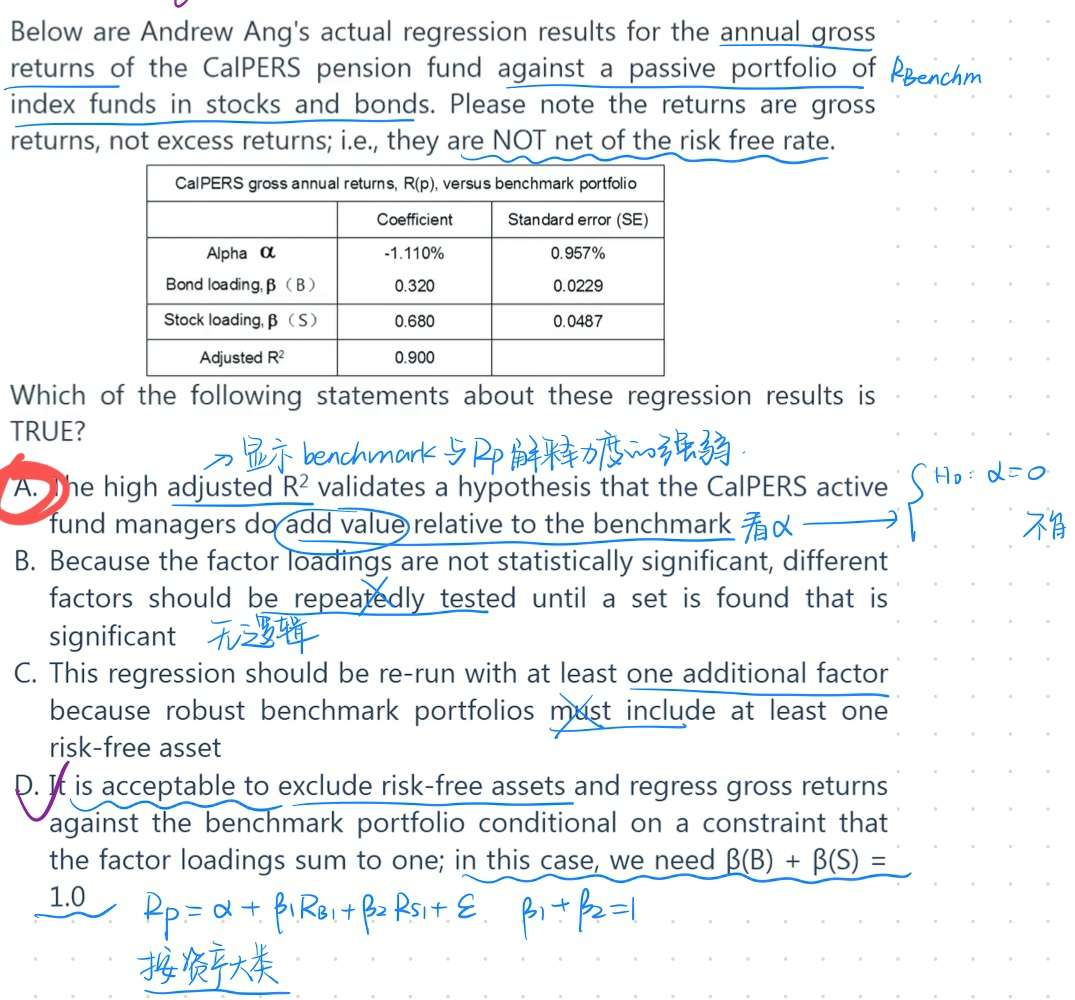 Below are Andrew Ang's actual regression results for the annual gross
returns of the CalPERS pension fund against a passive portfolio of RBenchm
index funds in stocks and bonds. Please note the returns are gross
returns, not excess returns; i.e., they are NOT net of the risk free rate.
CalPERS gross annual returns, R(p), versus benchmark portfolio
Coefficient Standard error (SE)
Alpha α -1.110% 0.957%
Bond loading, β (B) 0.320 0.0229
Stock loading, β (S) 0.680 0.0487
Adjusted R² 0.900
Which of the following statements about these regression results is
TRUE?
→ 显示 benchmark 与 Rp 解释力度的强弱.
A. The high adjusted R² validates a hypothesis that the CalPERS active { H0: α=0
fund managers do add value relative to the benchmark 看α → 不用
B. Because the factor loadings are not statistically significant, different
factors should be repeatedly tested until a set is found that is
significant 无逻辑
C. This regression should be re-run with at least one additional factor
because robust benchmark portfolios must include at least one
risk-free asset
D. It is acceptable to exclude risk-free assets and regress gross returns
against the benchmark portfolio conditional on a constraint that
the factor loadings sum to one; in this case, we need β(B) + β(S) =
1.0 Rp = α + β1RB1 + β2 RS1 + ε β1 + β2 = 1
按资产大类